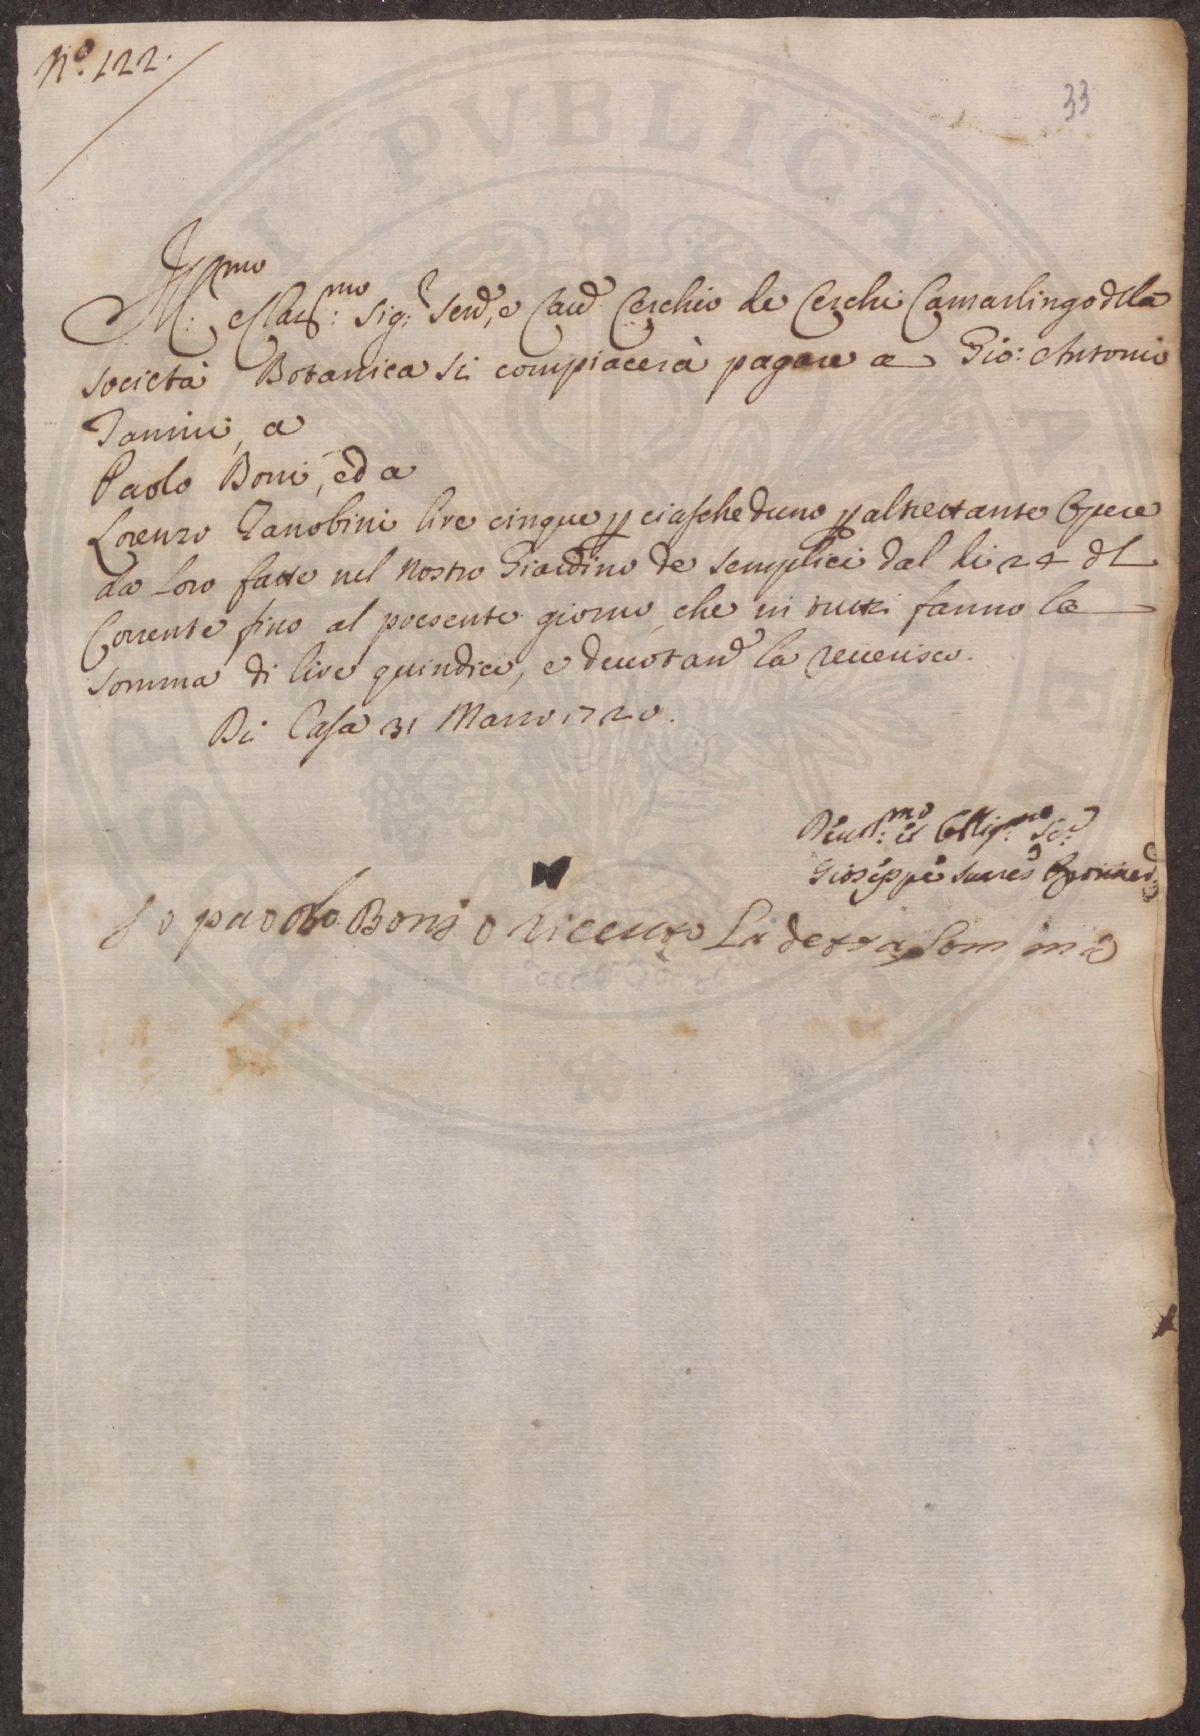 N.º 122.
33
Ill:mo e Clar:mo Sig:r Sen:e, e Cau:e Cerchio de Cerchi Camarlingo della
società Botanica si compiacerà pagare a Gio: Antonio
Tanini, a
Paolo Boni, ed a
Lorenzo Zanobini lire cinque p ciascheduno p altrettante Opere
da loro fatte nel nostro Giardino de semplici dal li 24 del
Corrente fino al presente giorno, che in tutti fanno la
somma di lire quindici, e deuotam:e la reuerisco.
Di Casa 31 Marzo 1720.
Deuot:mo et Oblig:mo Se:e
Gioseppe
Io paolo Boni o riceuto La detta Somma
PVBLICA